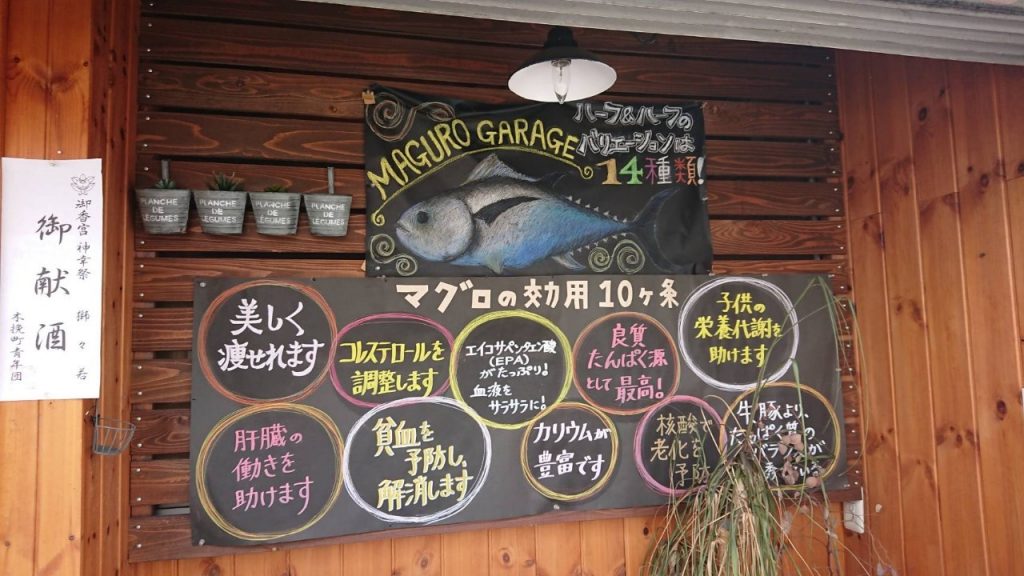 御香宮神幸祭 獅々若
御献酒
木挽町青年団
PLANCHE
DE
LEGUMES
PLANCHE
DE
LEGUMES
PLANCHE
DE
LEGUMES
PLANCHE
DE
LEGUMES
MAGURO GARAGE
ハーフ&ハーフの
バリエーションは
14種類!
マグロの効用10ヶ条
美しく
痩せれます
コレステロールを
調整します
エイコサペンタエン酸
(EPA)
がたっぷり!
血液を
サラサラに!
良質
たんぱく源
として最高!
子供の
栄養代謝を
助けます
肝臓の
働きを
助けます
貧血を
予防し、
解消します
カリウムが
豊富です
核酸で
老化を
予防
牛豚より、
たんぱく質の